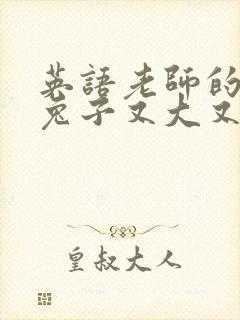 英語老師的
兔子又大又
皇叔大人